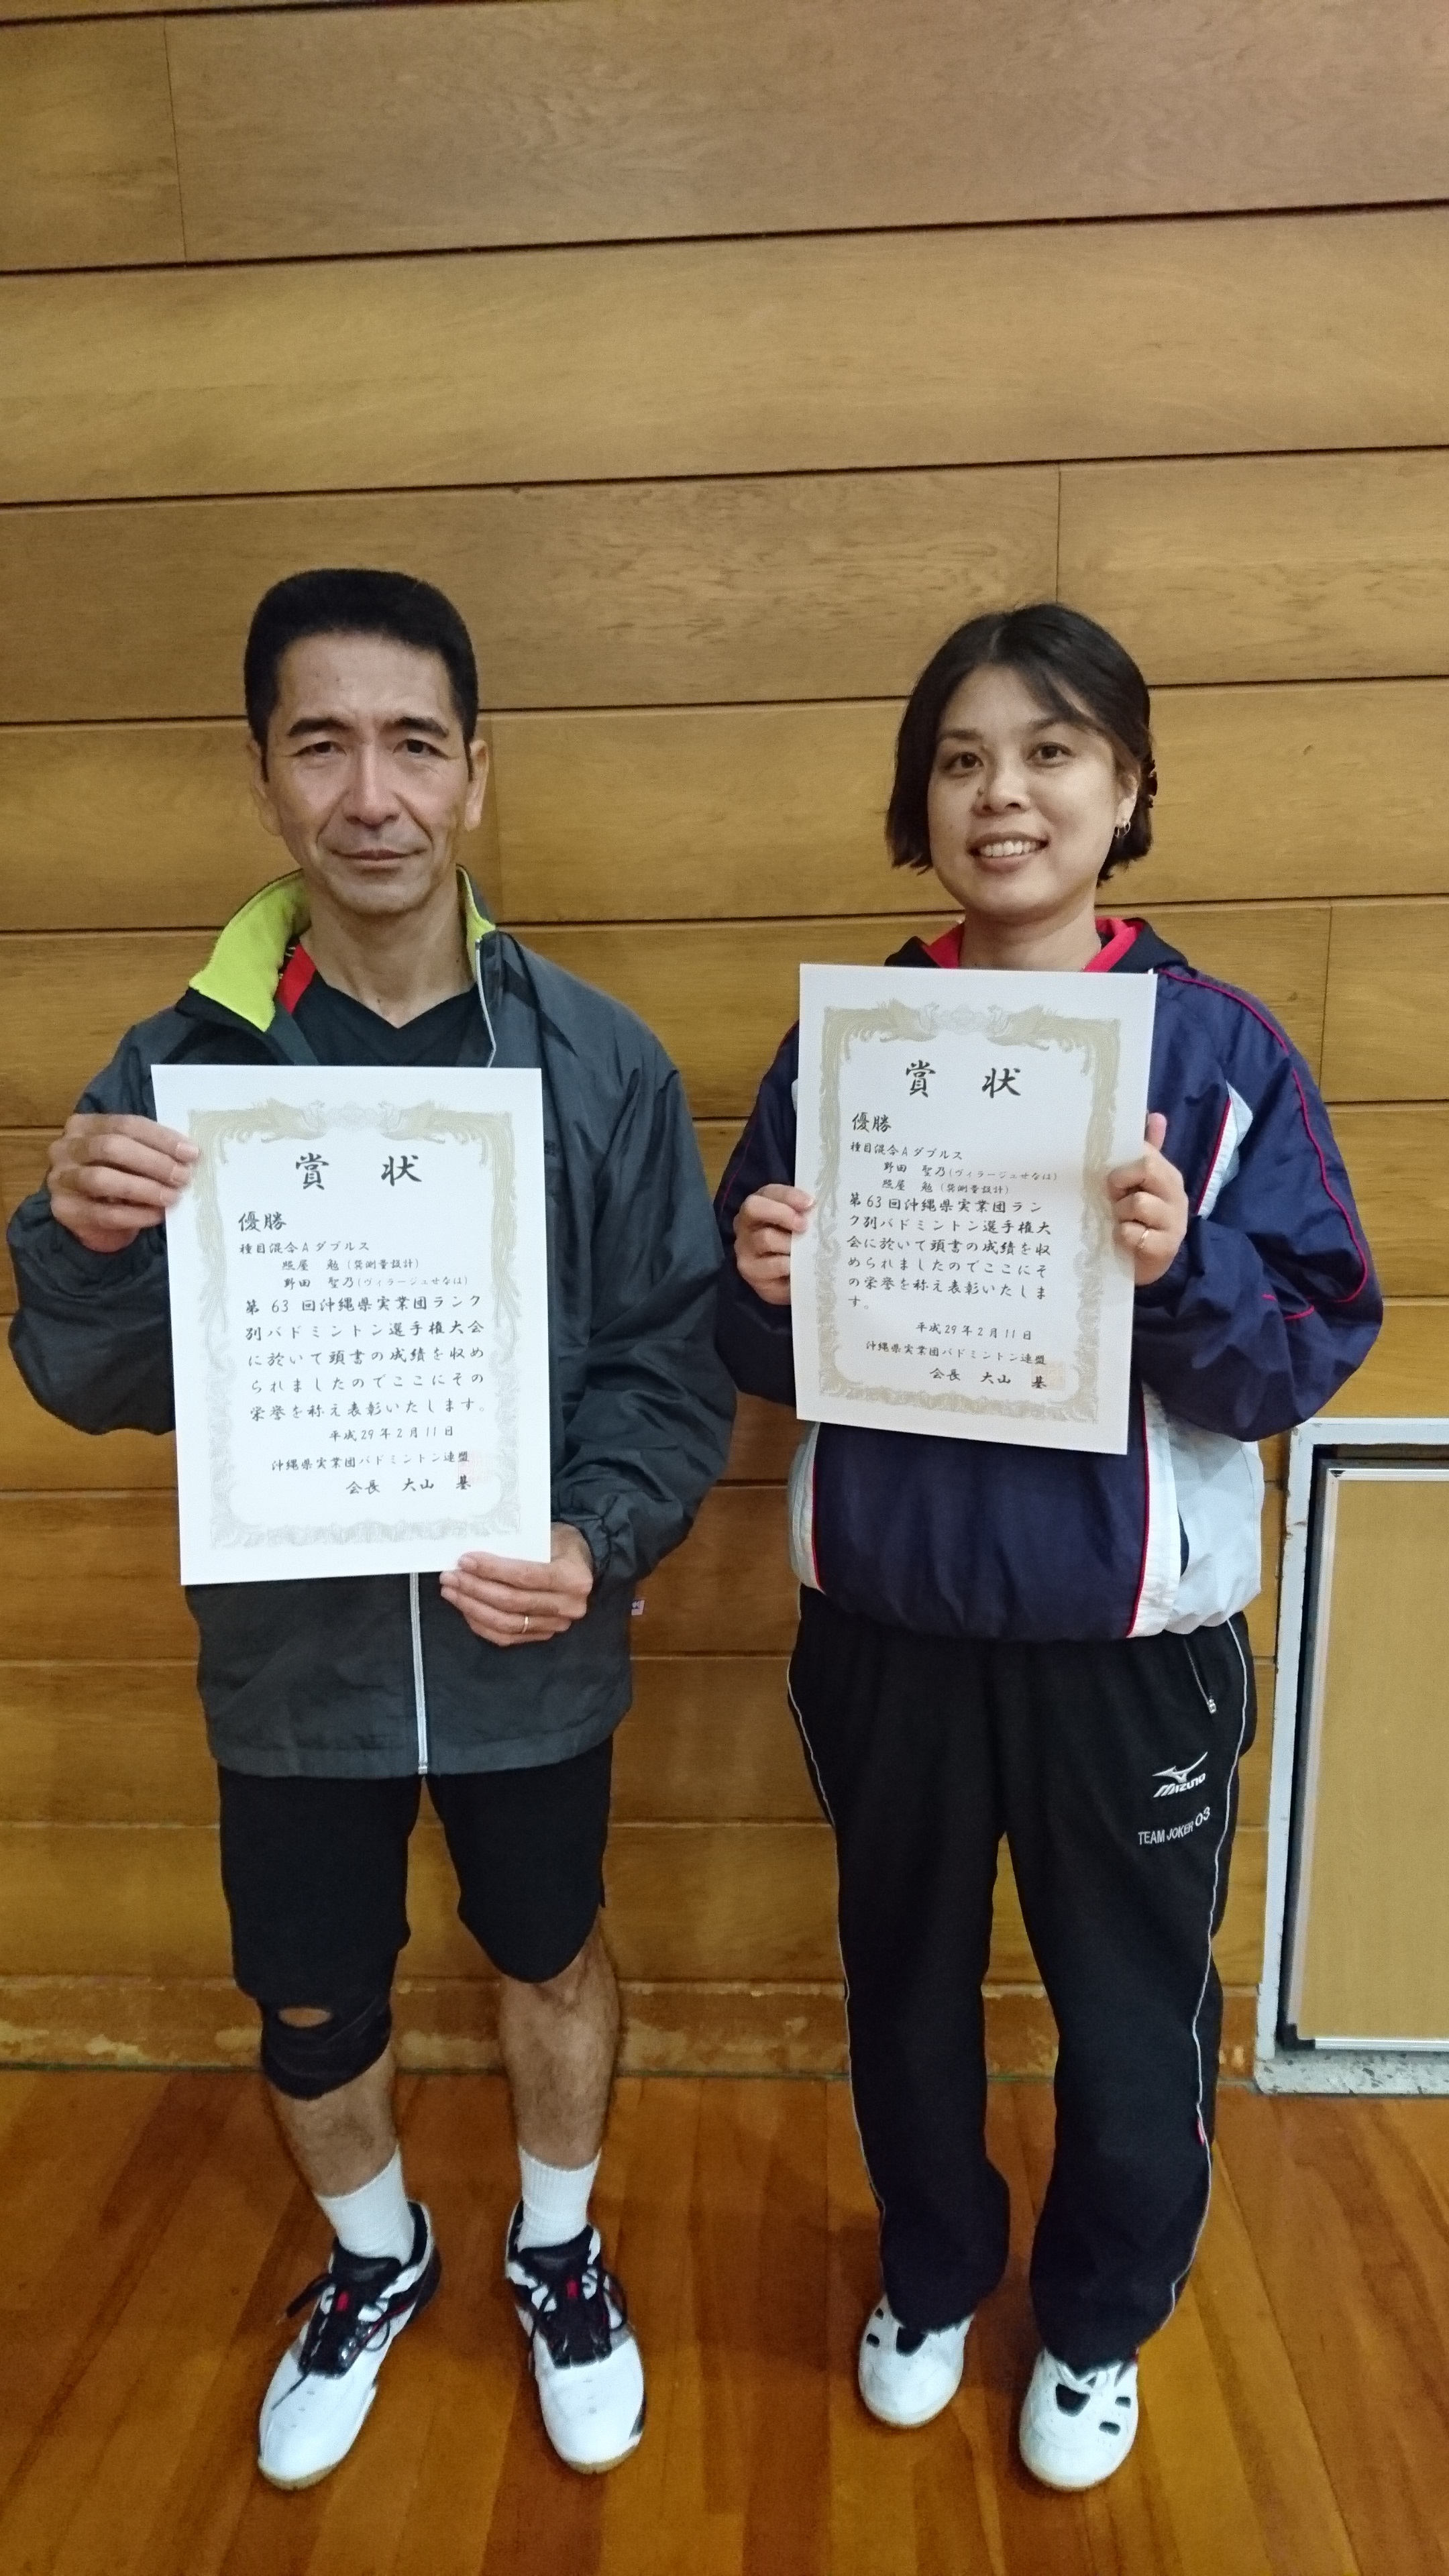 賞 状
優勝
種目混合Aダブルス
照屋 勉(巽測量設計)
野田 聖乃(ヴィラージュせなは)
第 63 回沖縄県実業団ランク
別バドミントン選手権大会
に於いて頭書の成績を収め
られましたのでここにその
栄誉を称え表彰いたします。
平成29年2月11日
沖縄県実業団バドミントン連盟
会長 大山 基
賞 状
優勝
種目混合Aダブルス
野田 聖乃(ヴィラージュせなは)
照屋 勉(巽測量設計)
第63回沖縄県実業団ラン
ク別バドミントン選手権大
会に於いて頭書の成績を収
められましたのでここにそ
の栄誉を称え表彰いたしま
す。
平成29年2月11日
沖縄県実業団バドミントン連盟
会長 大山 基
MIZUNO
TEAM JOKER 03